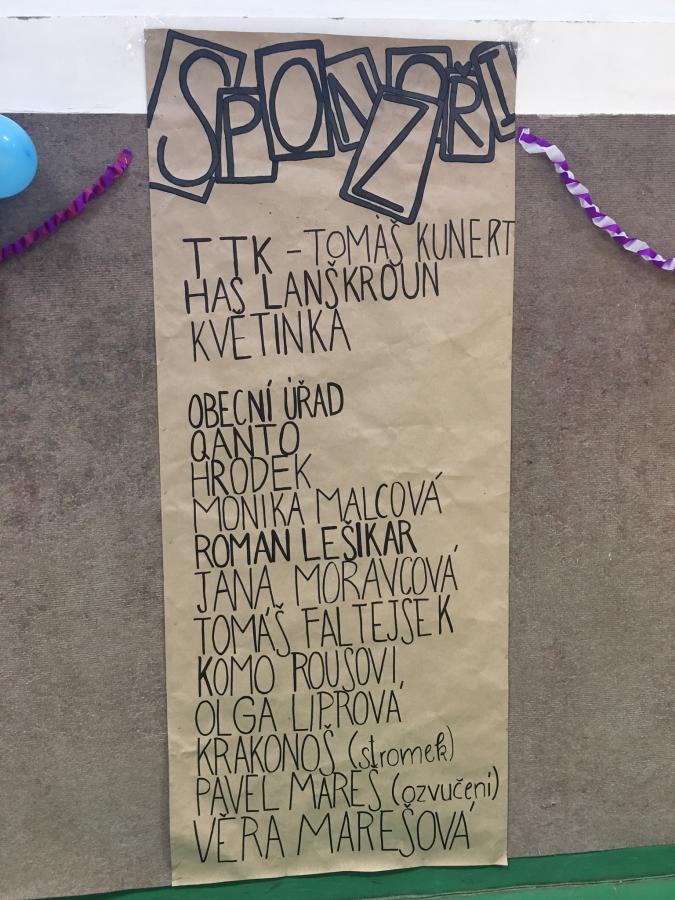 SPONZOŘI
TTK - TOMÀŠ KUNERT
HAS LANŠKROUN
KVĚTINKA
OBECNÍ ÚŘAD
QANTO
HRODEK
MONIKA MALCOVÁ
ROMAN LEŠIKAR
JANA MORAVCOVÁ
TOMÁŠ FALTEJSEK
KOMO ROUSOVI,
OLGA LIPROVÁ
KRAKONOŠ (stromek)
PAVEL MAREŠ (ozvučení)
VĚRA MAREŠOVÁ